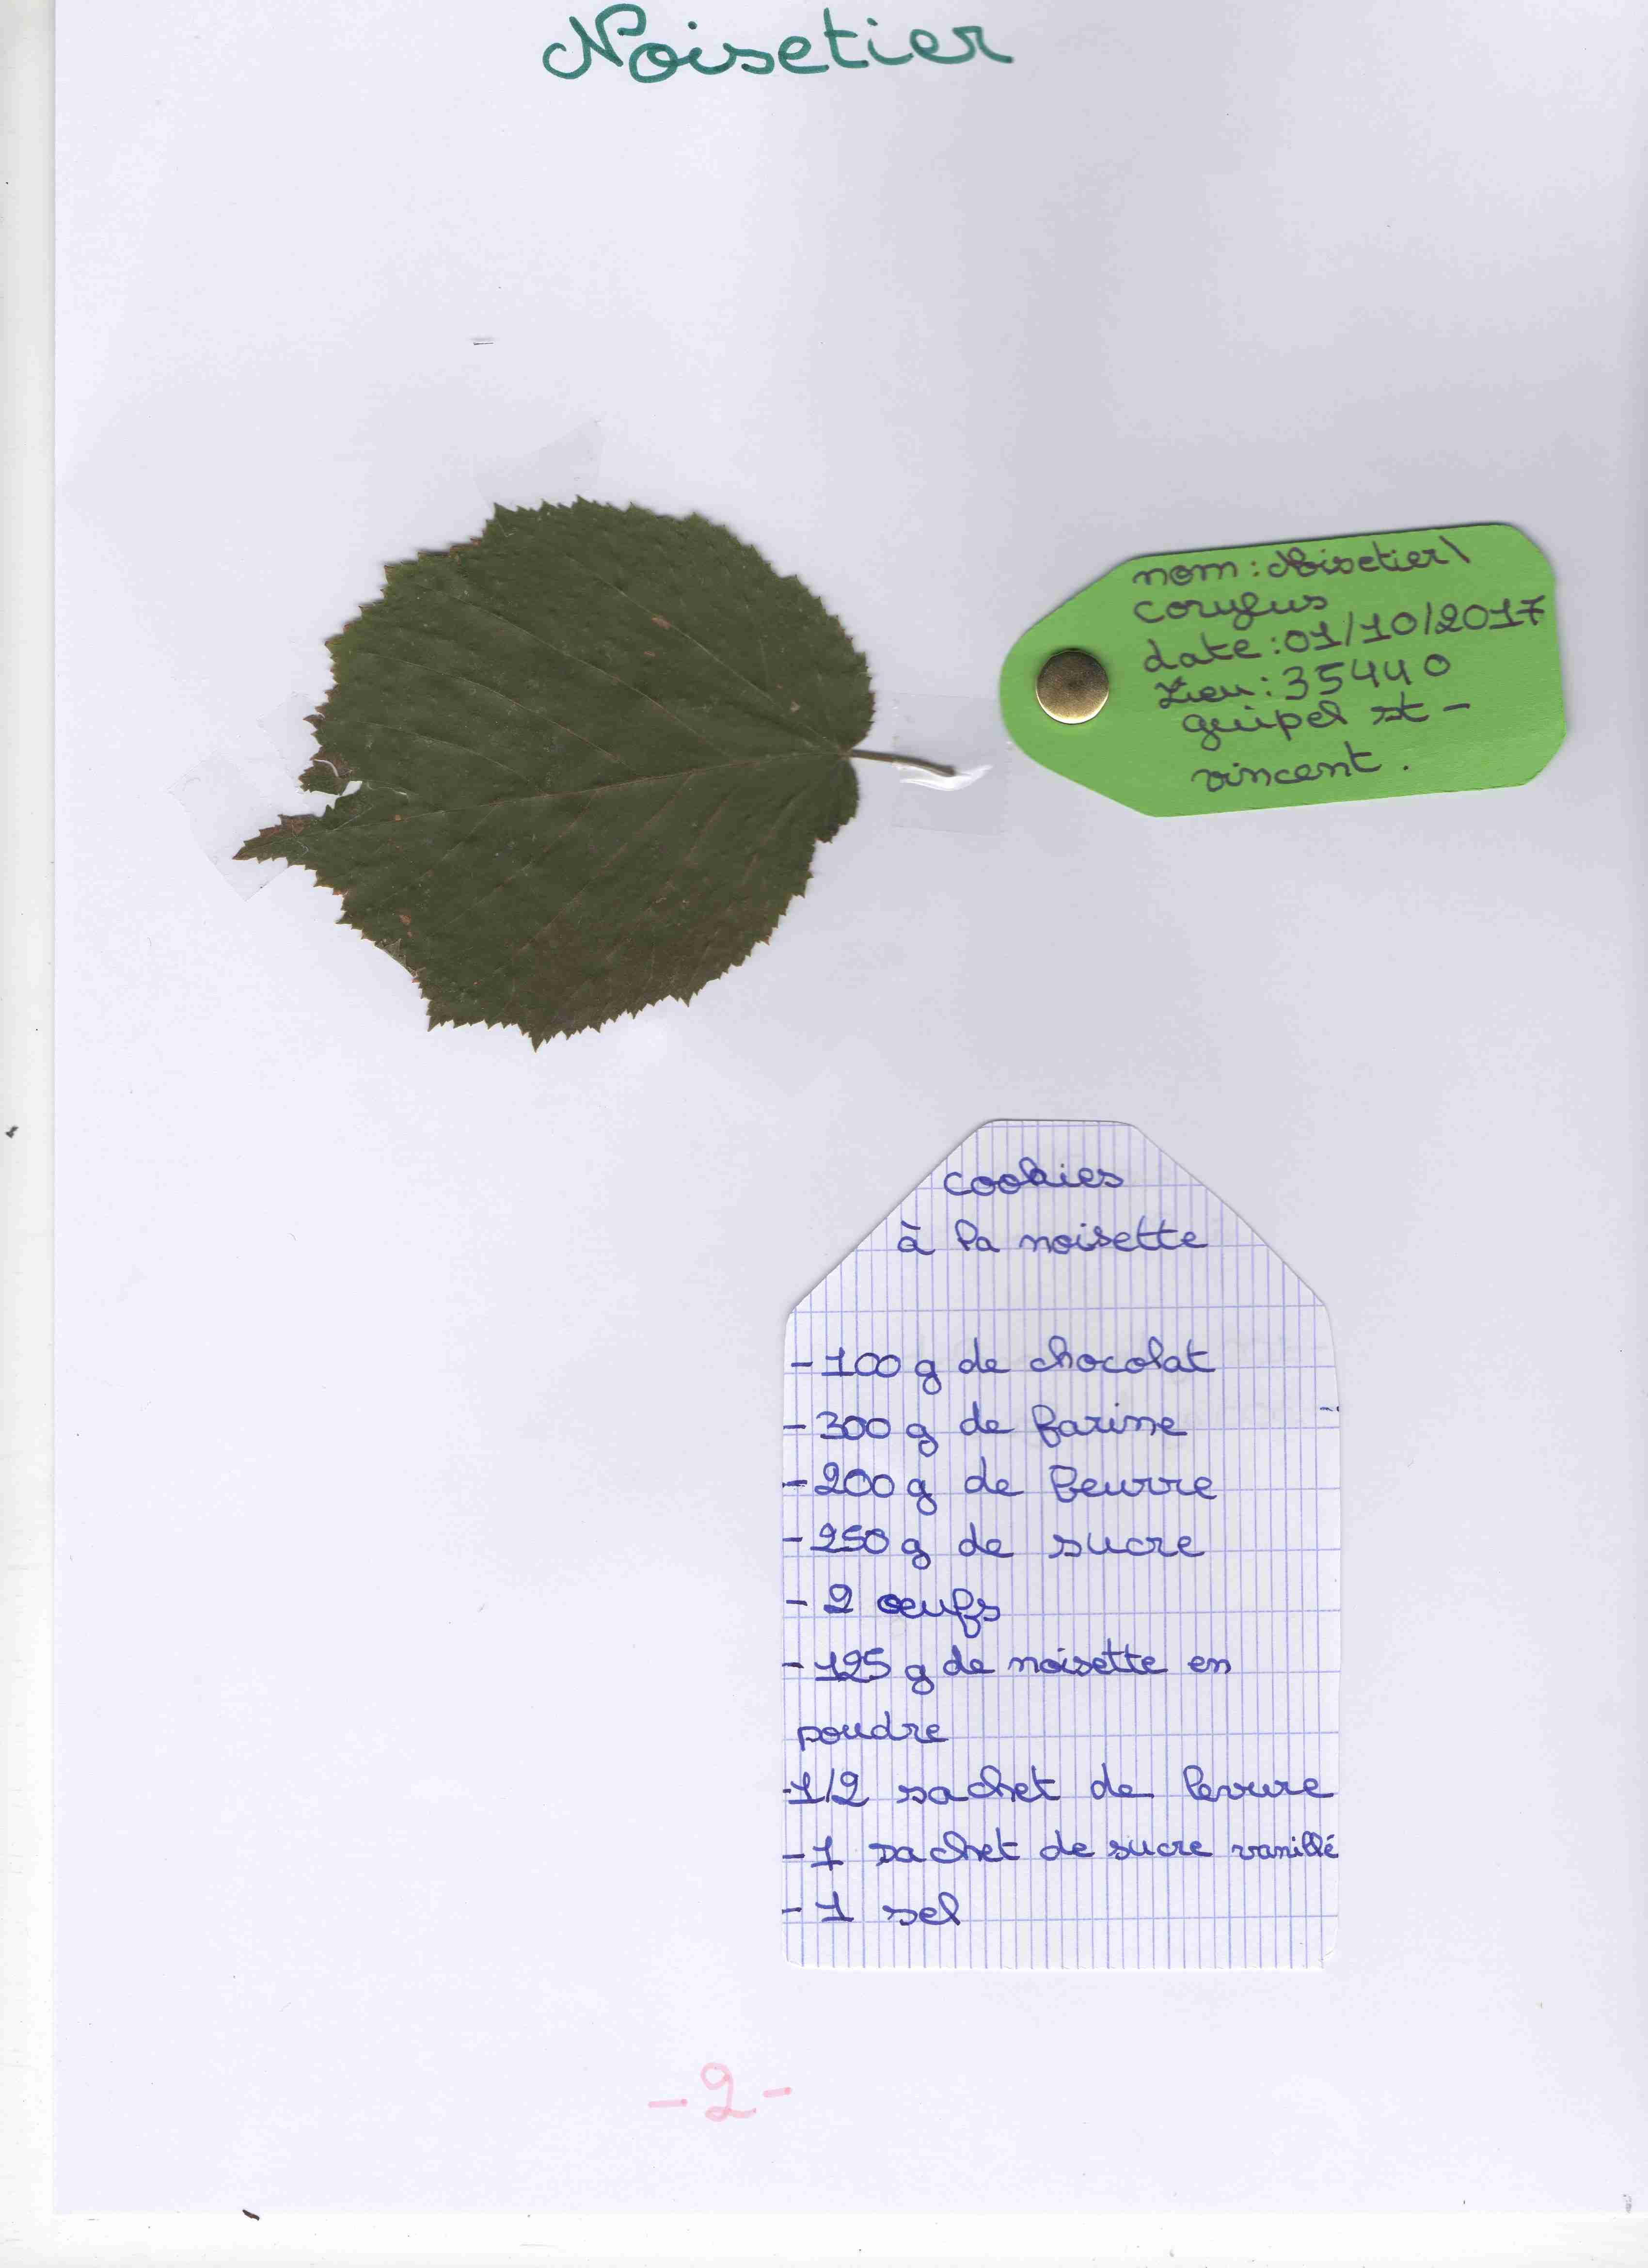 Noisetier
nom : Noisetier \
corylus
date : 01/10/2017
Lieu : 35440
guipel st -
vincent .
cookies
à la noisette
- 100 g de chocolat
- 300 g de farine
- 200 g de beurre
- 250 g de sucre
- 2 œufs
- 125 g de noisette en
poudre
-1/2 sachet de levure
- 1 sachet de sucre vanillé
- 1 sel
- 2 -